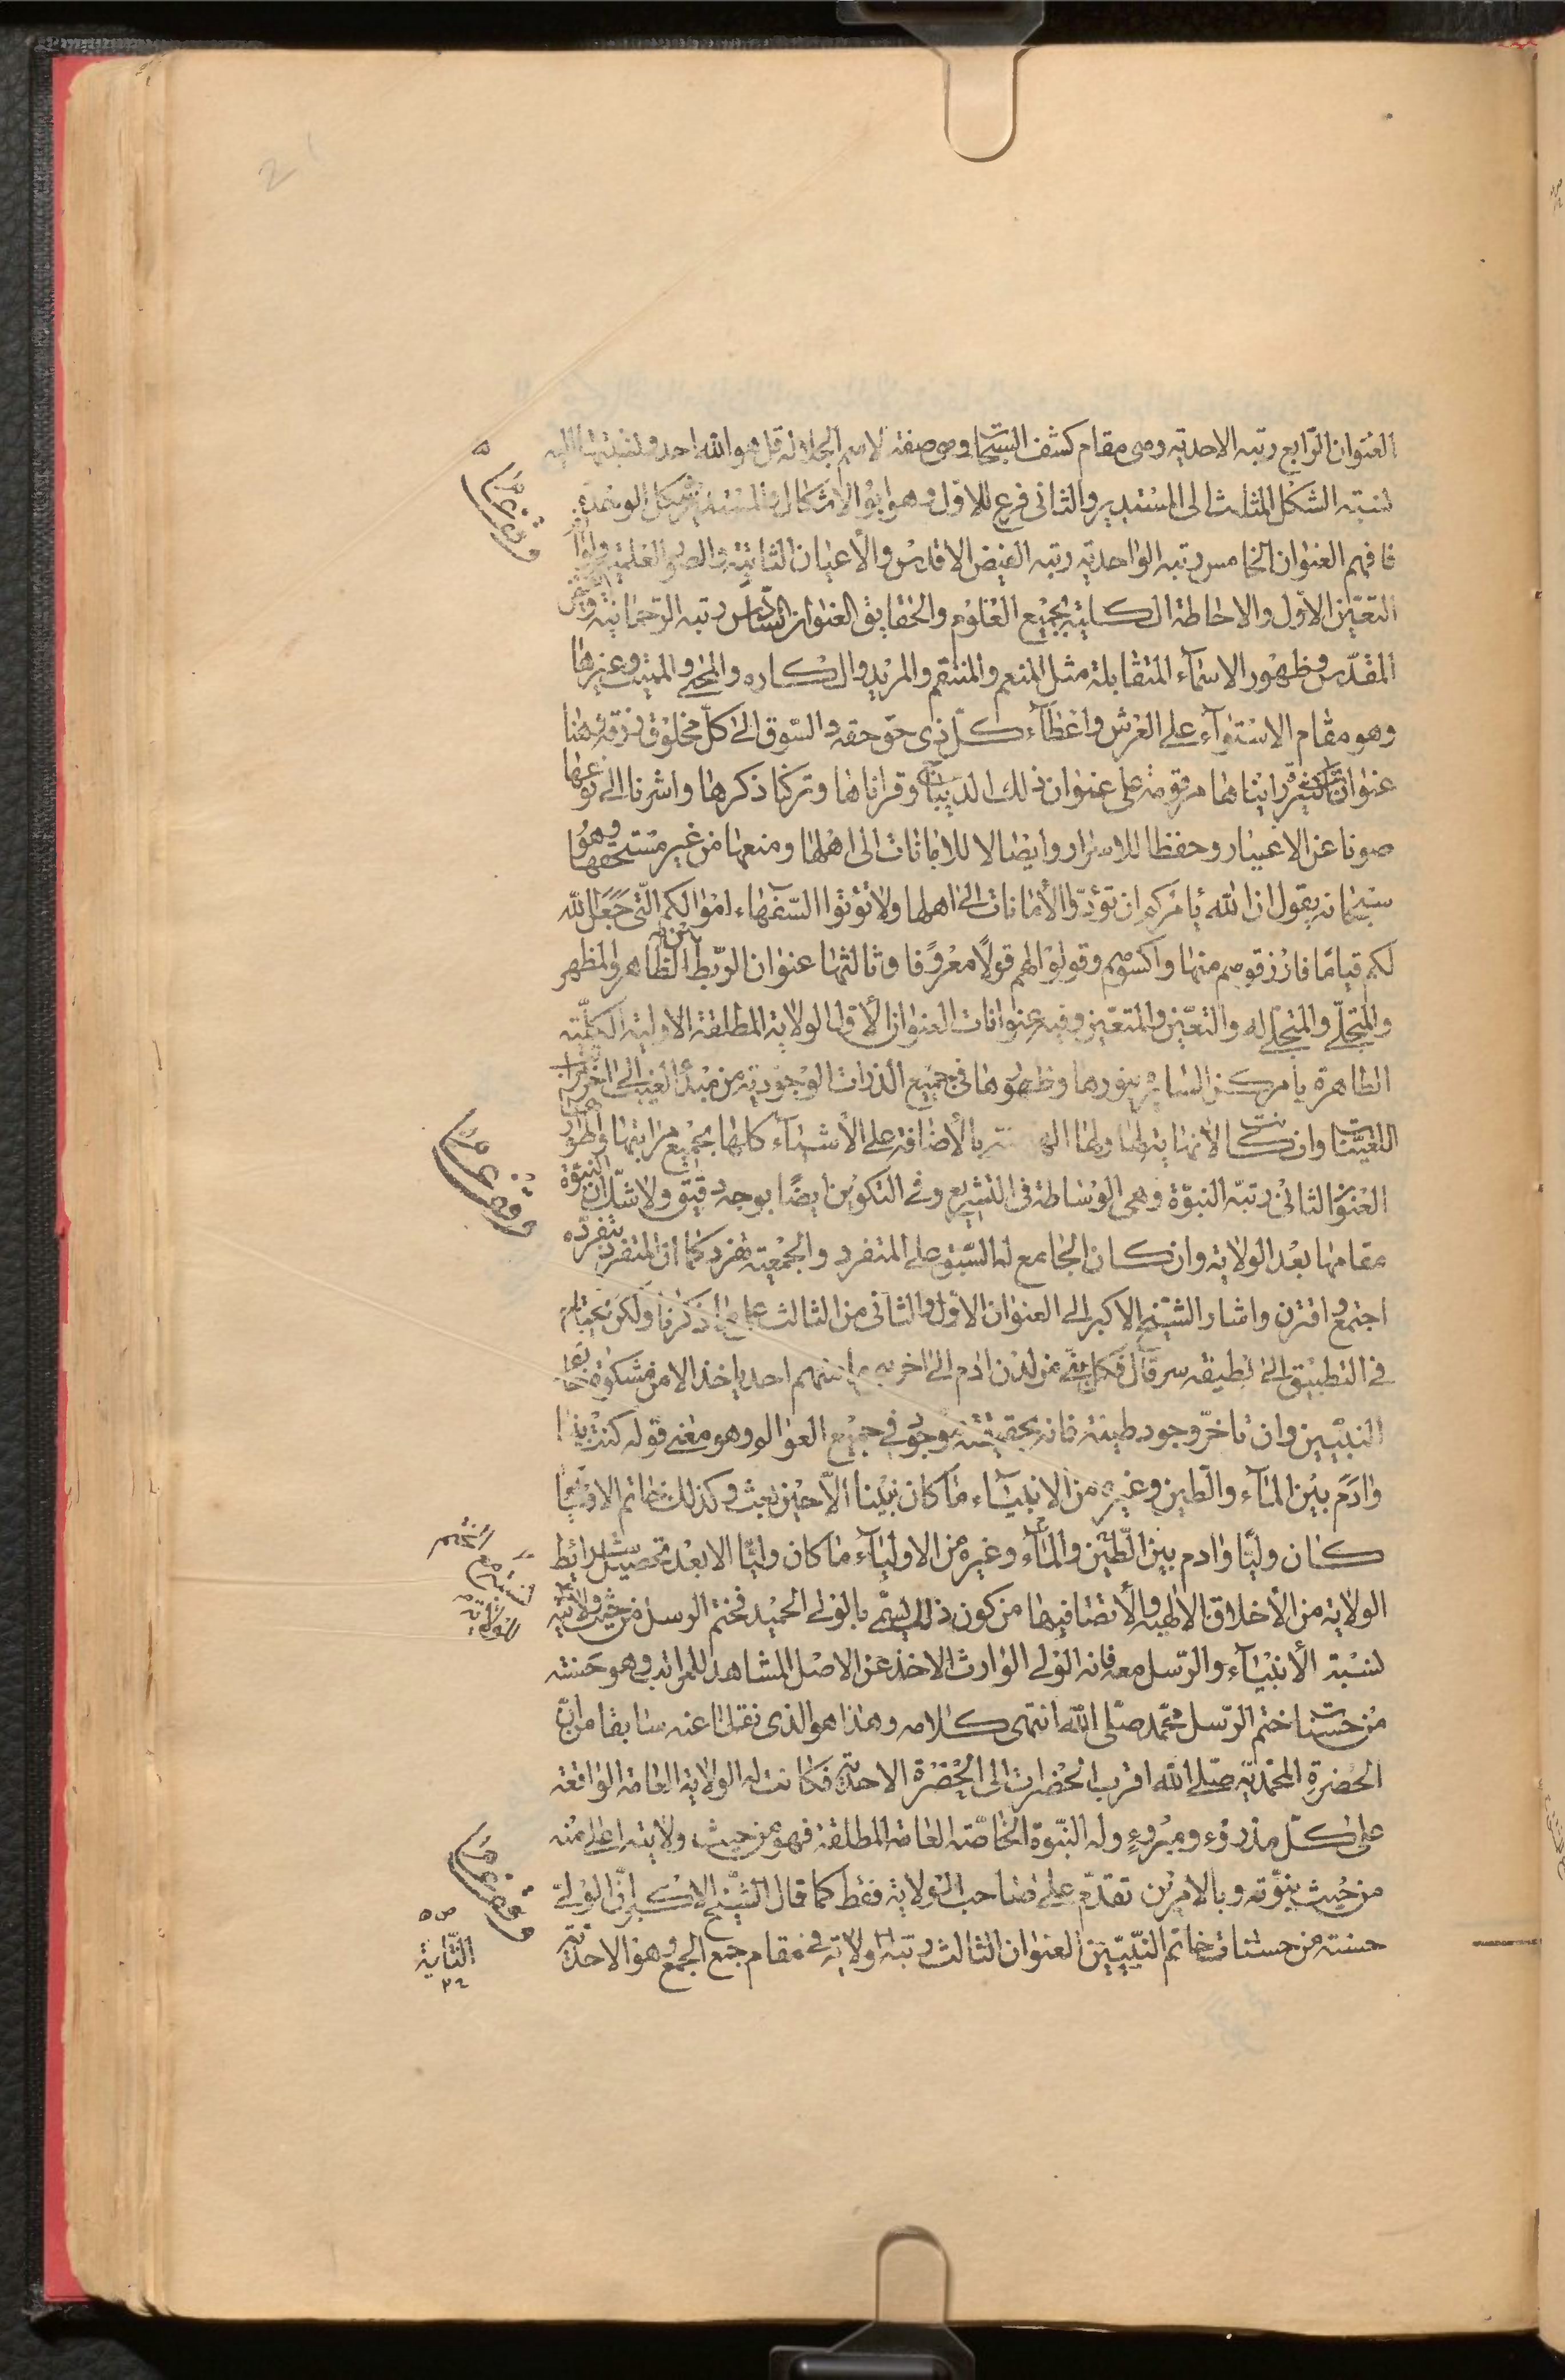 العنوان الرابع رتبه الاحديه وهي مقام كشف السبحات وهي صفة لاسم الجلالة قل هو الله احد
نسبته الشكل المثلث الى المستدير والثانى فرع للاول وهو ابو الاشكال
فافهم العنوان الخامس رتبه الواحديه رتبه الفيض الاقدس والأعيان الثابتة والصور العلمية
التعيّن الاوّل والاحاطة الكلية بجميع العلوم والحقايق العنوان السّادس رتبه الرّحمانيّة
المقدّس وظهور الاسماء المتقابلة مثل المنعم والمنتقم والمريد والكاره والمحي والمميت وغيرها
وهو مقام الاستوآء على العرش واعطآء كلّ ذى حق حقه والسّوق الى كلّ مخلوق رزقه وهنا
عنوانات كثيرة رايناها مرقومة على عنوان ذلك الديباج وقراناها وتركنا ذكرها واشرنا الى نوعها
صونا عن الاغيار وحفظا للاسرار وايصالا للامانات الى اهلها ومنعها من غير مستحقها وهو
سبحانه يقول ان الله يأمركم ان تؤدّوا الأمانات الى اهلها ولا تؤتوا السّفهاء اموالكم الّتى جعل الله
لكم قيامًا فارزقوهم منها واكسوهم وقولوا لهم قولًا معروفا وثالثها عنوان الرّبط بين الظاهر والمظهر
والمتجلّى والمتجلّى له والتعيّن والمتعيّن وفيه عنوانات العنوان الأول الولاية المطلقة الاولية الكلّية
الظاهرة بامر كن الساير بنورها وظهورها فى جميع الذرات الوجودية من مبدأ الغيب الى اخر
التعيّنات وان كانت لا نهاية لها ولها بالأضافة على الأشيآء كلها بجميع مراتبها واطوارها
العنوان الثانى رتبة النبوّة وهى الوساطة فى التشريع وفى التكوين ايضًا بوجه دقيق ولا شك ان النبوّة
مقامها بعد الولاية وان كان الجامع لهما السّبق على المتفرد والجمعية تفرد كما ان المتفرد بتفرّده
اجتمع واقترن واشار الشيخ الاكبر الى العنوان الاوّل والثانى من الثالث على ما ذكرنا ولكن يحتاج
فى التطبيق الى لطيفه سر قال فكل نبىّ من لدن ادم الى اخر نبى ما منهم احد ياخذ الا من مشكوة خاتم
النبيّين وان تاخّر وجود طينته فانه بحقيقته موجود فى جميع العوالم وهو معنى قوله كنت نبيا
وادم بين المآء والطّين وغيره من الانبيآء ما كان نبيّنا الّا حين بعث وكذلك خاتم الاوليآء
كان وليًّا وادم بين الطّين والمآء وغيره من الاوليآء ما كان وليًّا الا بعد تحصيل شرائط
الولاية من الأخلاق الالهية والأتصاف بها من كون ذلك يسمّى بالولى الحميد فختم الرسل من حيث ولايته
نسبة الأنبيآء والرّسل معه فانه الولى الوارث الاخذ عن الاصل المشاهد للمراتب وهو حسنة
من حسنات ختم الرّسل محمّد صلّى الله انتهى كلامه وهذا هو الذى نقلنا عنه سابقا من انّ
الحضرة المحمّديّة صلّى الله اقرب الحضرات الى الحضرة الاحديّة فكانت له الولاية العامة الواقعة
على كلّ مذروء ومبروء وله النبوّة الخاصّة العامة المطلقة فهو من حيث ولايته اعلى منه
من حيث نبوّته وبالامرين تقدّم على صاحب الولاية فقط كما قال الشيخ الاكبر انّ الولىّ
حسنة من حسنات خاتم النّبيّين العنوان الثالث رتبة ولاية فى مقام جمع الجمع وهو الاحديّة
نسبته مع الختم للولاية
الثانية